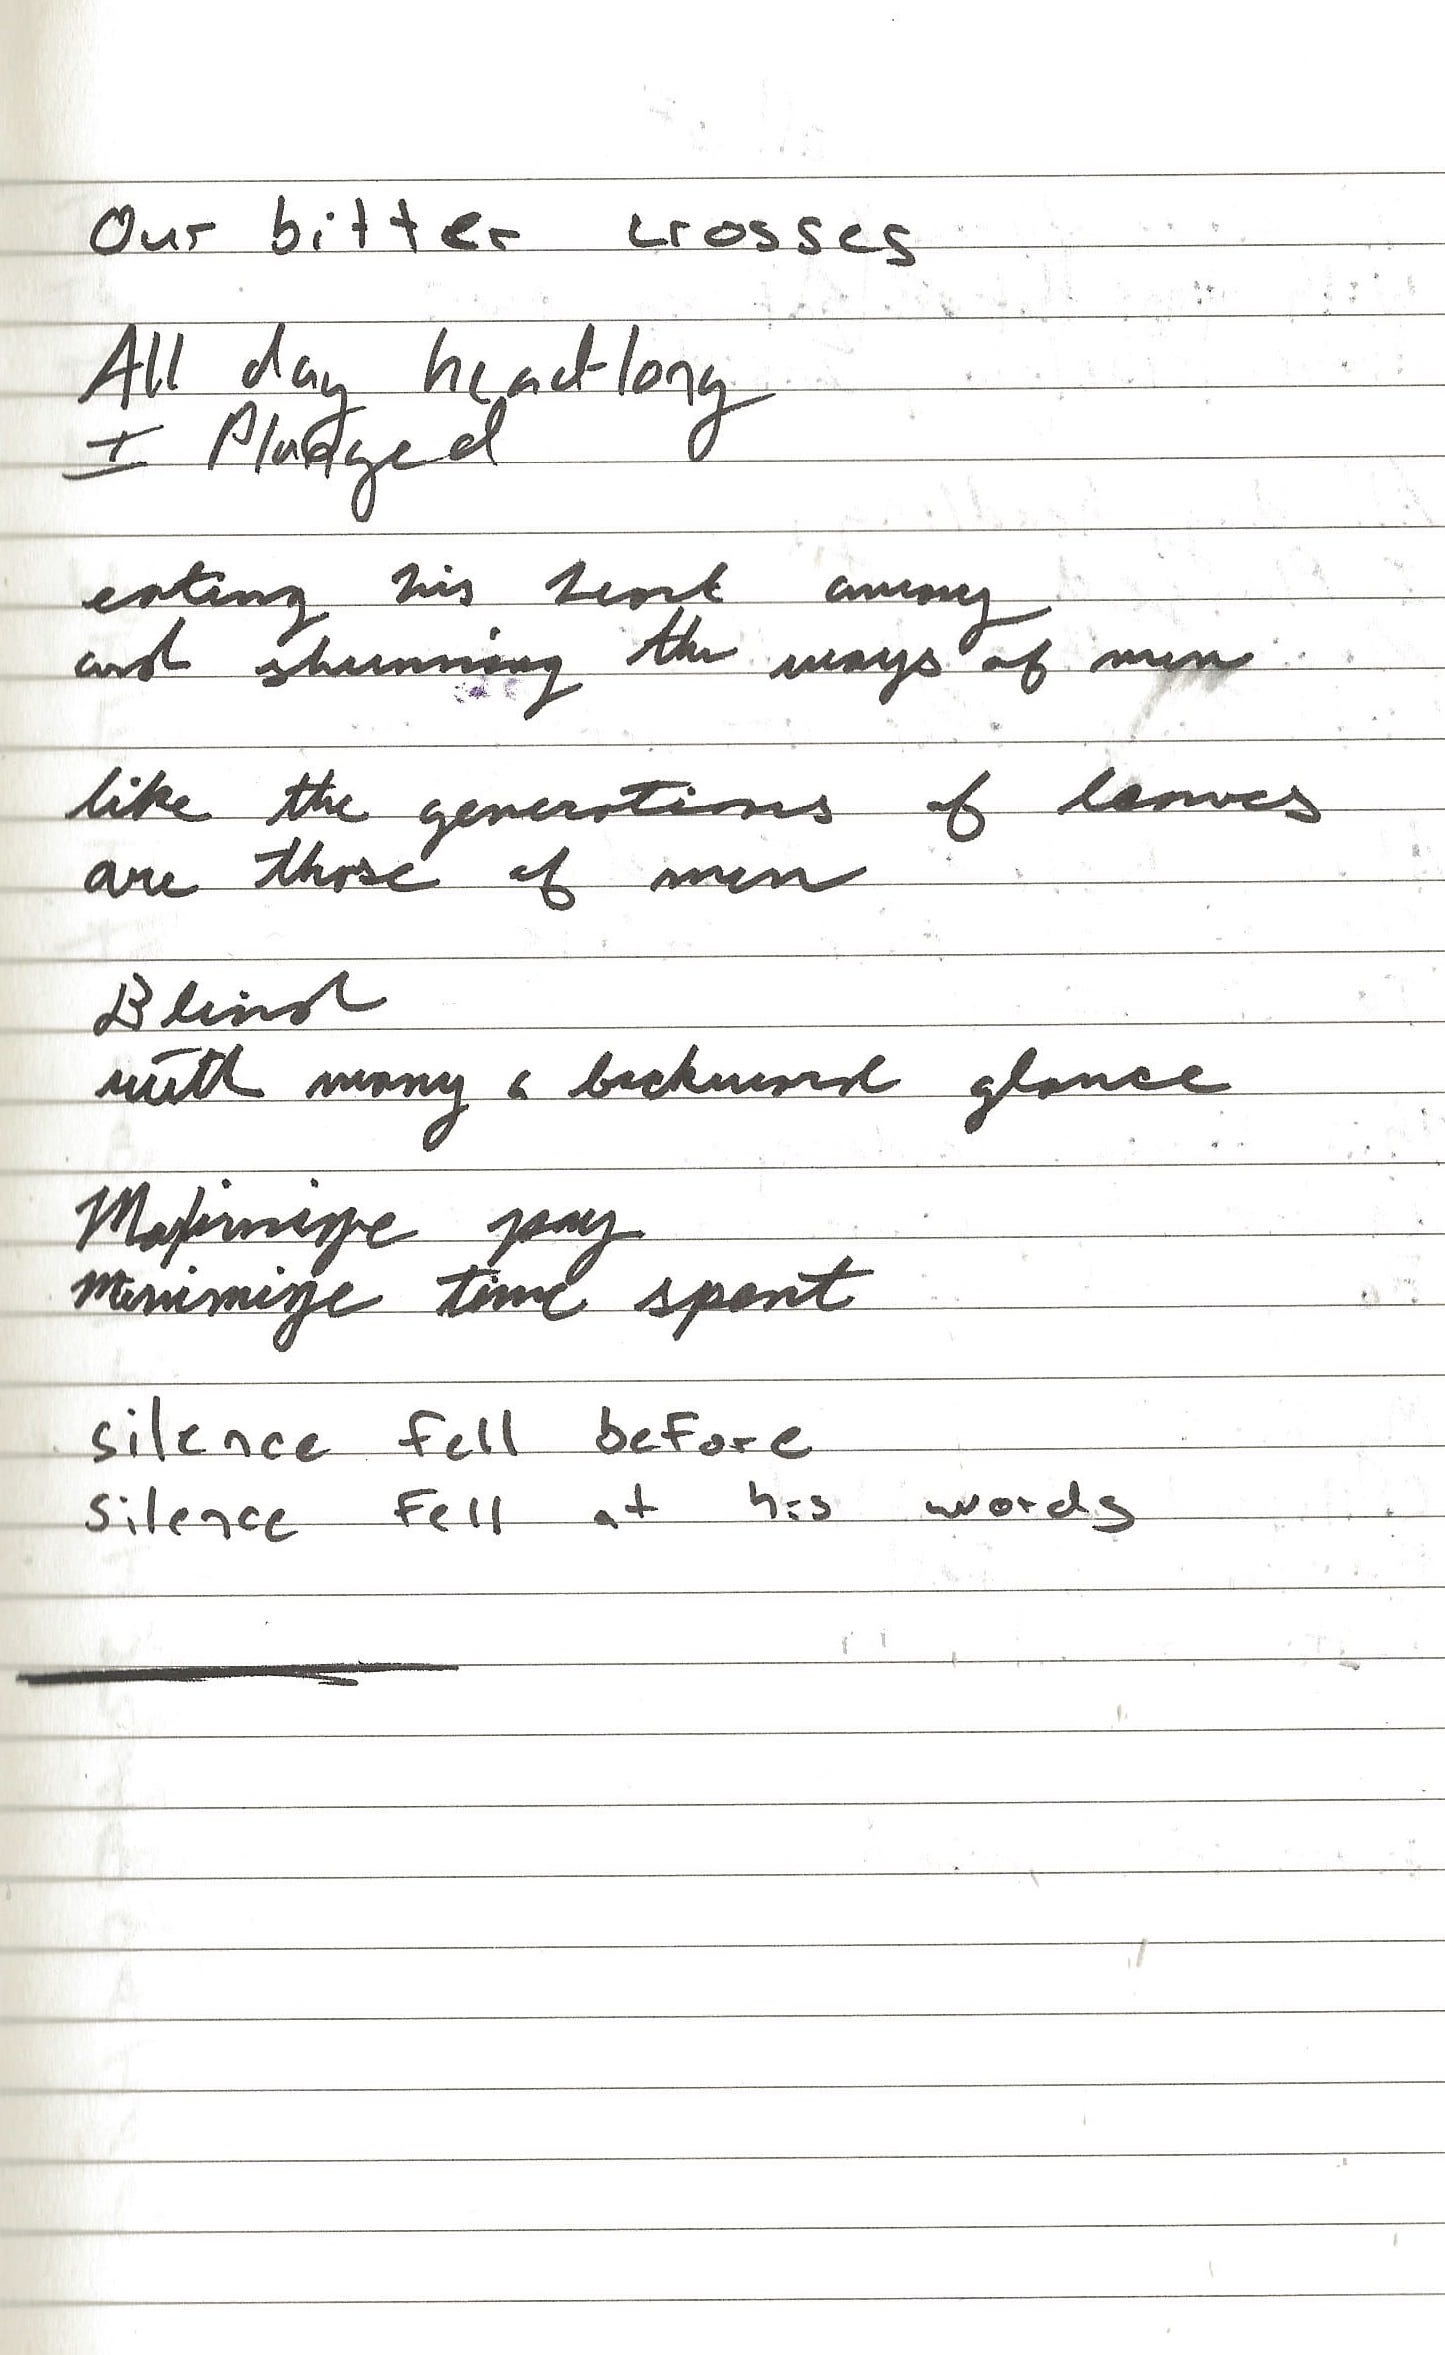 Our bitter crosses
All day headlong
I Pludged
eating his heart away
and shunning the ways of men
like the generations of leaves
are those of men
Blind
with many a backward glance
Maximize pay
Minimize time spent
silence fell before
silence fell at his words